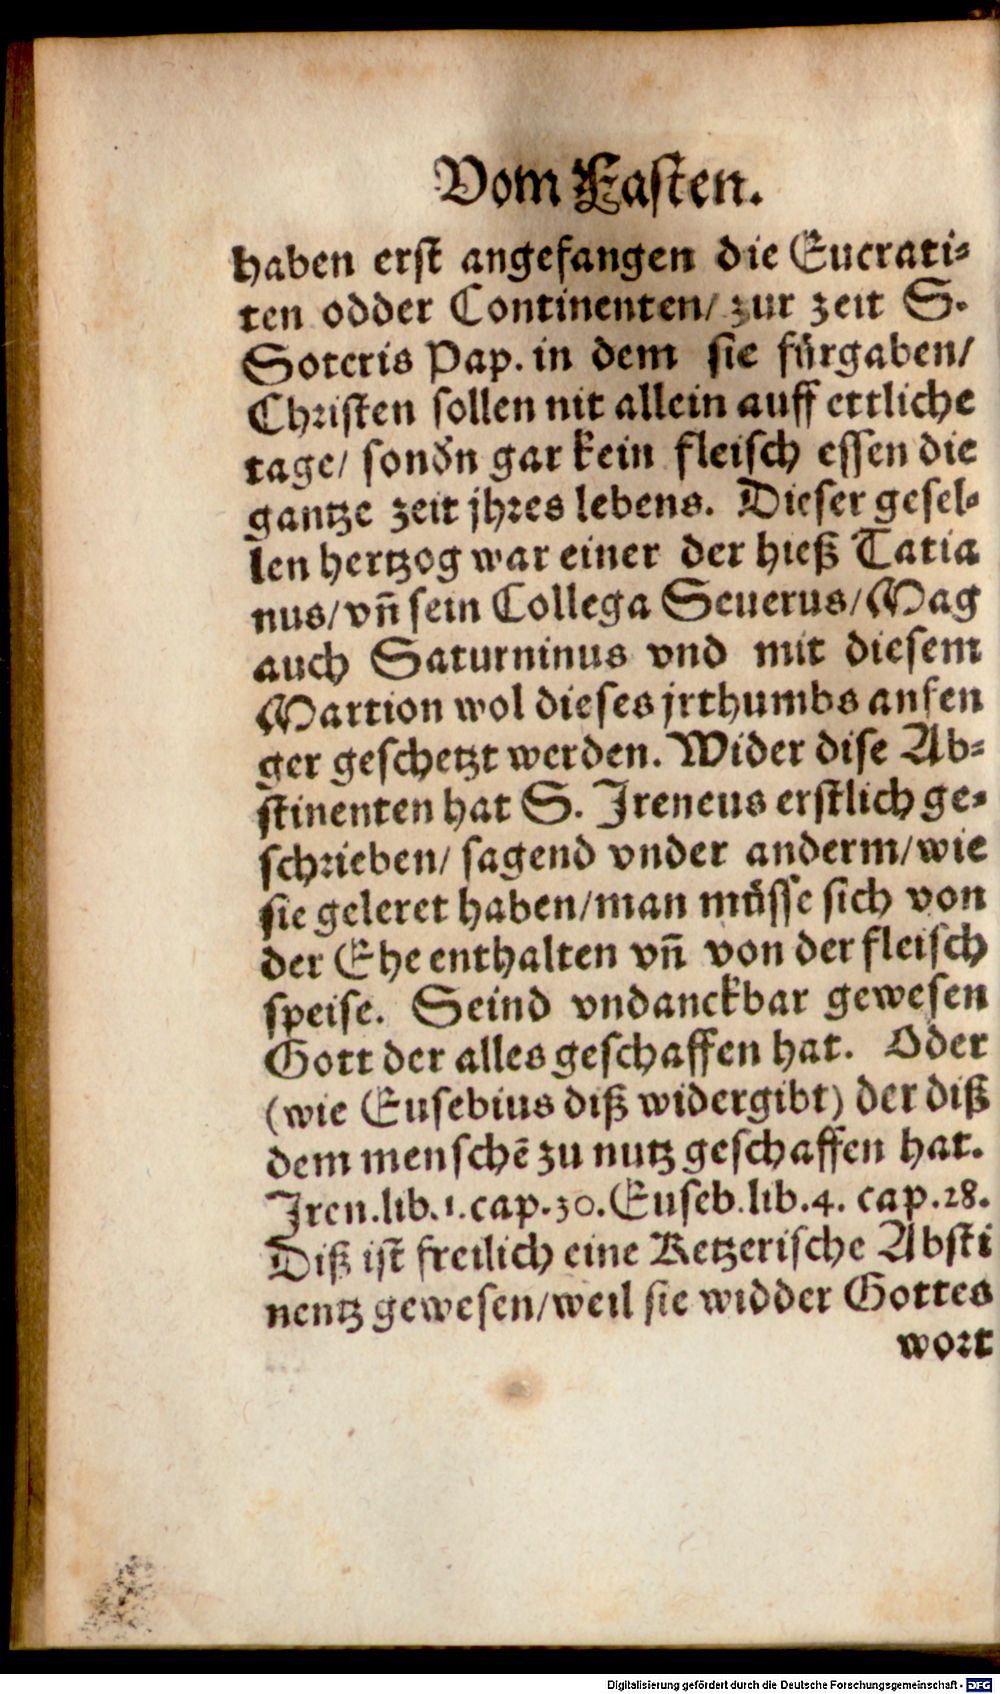 Vom Fasten.
haben erst angefangen die Eucrati-
ten odder Continenten/ zur zeit S.
Soteris Pap. in dem sie fürgaben/
Christen sollen nit allein auff ettliche
tage/ sonðn gar kein fleisch essen die
gantze zeit jhres lebens. Dieser gesel-
len hertzog war einer der hieß Tatia
nus/ vñ sein Collega Seuerus/ Mag
auch Saturninus vnd mit diesem
Martion wol dieses jrthumbs anfen
ger geschetzt werden. Wider dise Ab-
stinenten hat S. Ireneus erstlich ge-
schrieben/ sagend vnder anderm/ wie
sie geleret haben/ man müsse sich von
der Ehe enthalten vñ von der fleisch
speise. Seind vndanckbar gewesen
Gott der alles geschaffen hat. Oder
(wie Eusebius diß widergibt) der diß
dem menschē zu nutz geschaffen hat.
Iren. lib. 1. cap. 30. Euseb. lib. 4. cap. 28.
Diß ist freilich eine Ketzerische Absti
nentz gewesen/ weil sie widder Gottes
wort
Digitalisierung gefördert durch die Deutsche Forschungsgemeinschaft - DFG